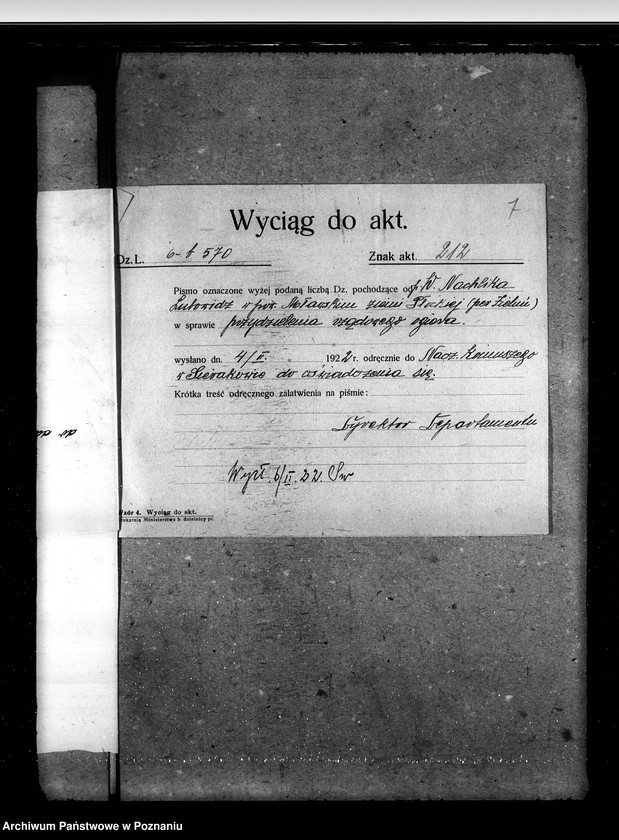 7
Wyciąg do akt.
Dz. L. 6-b 570 Znak akt. 212
Pismo oznaczone wyżej podaną liczbą Dz. pochodzące od p. W. Nachlika
w pow. Mławskim ziemi Płockiej (per Zieluń)
w sprawie przydzielenia rządowego ogiera.
wysłano dn. 4/II 1922 r. odręcznie do Nacz. Koniuszego
w Sierakowie do oświadczenia się.
Krótka treść odręcznego załatwienia na piśmie:
Dyrektor Departamentu
Wysł. 6/II.22. Sw
Wzór 4. Wyciąg do akt.
Drukarnia Ministerstwa b. dzielnicy pr.
Archiwum Państwowe w Poznaniu